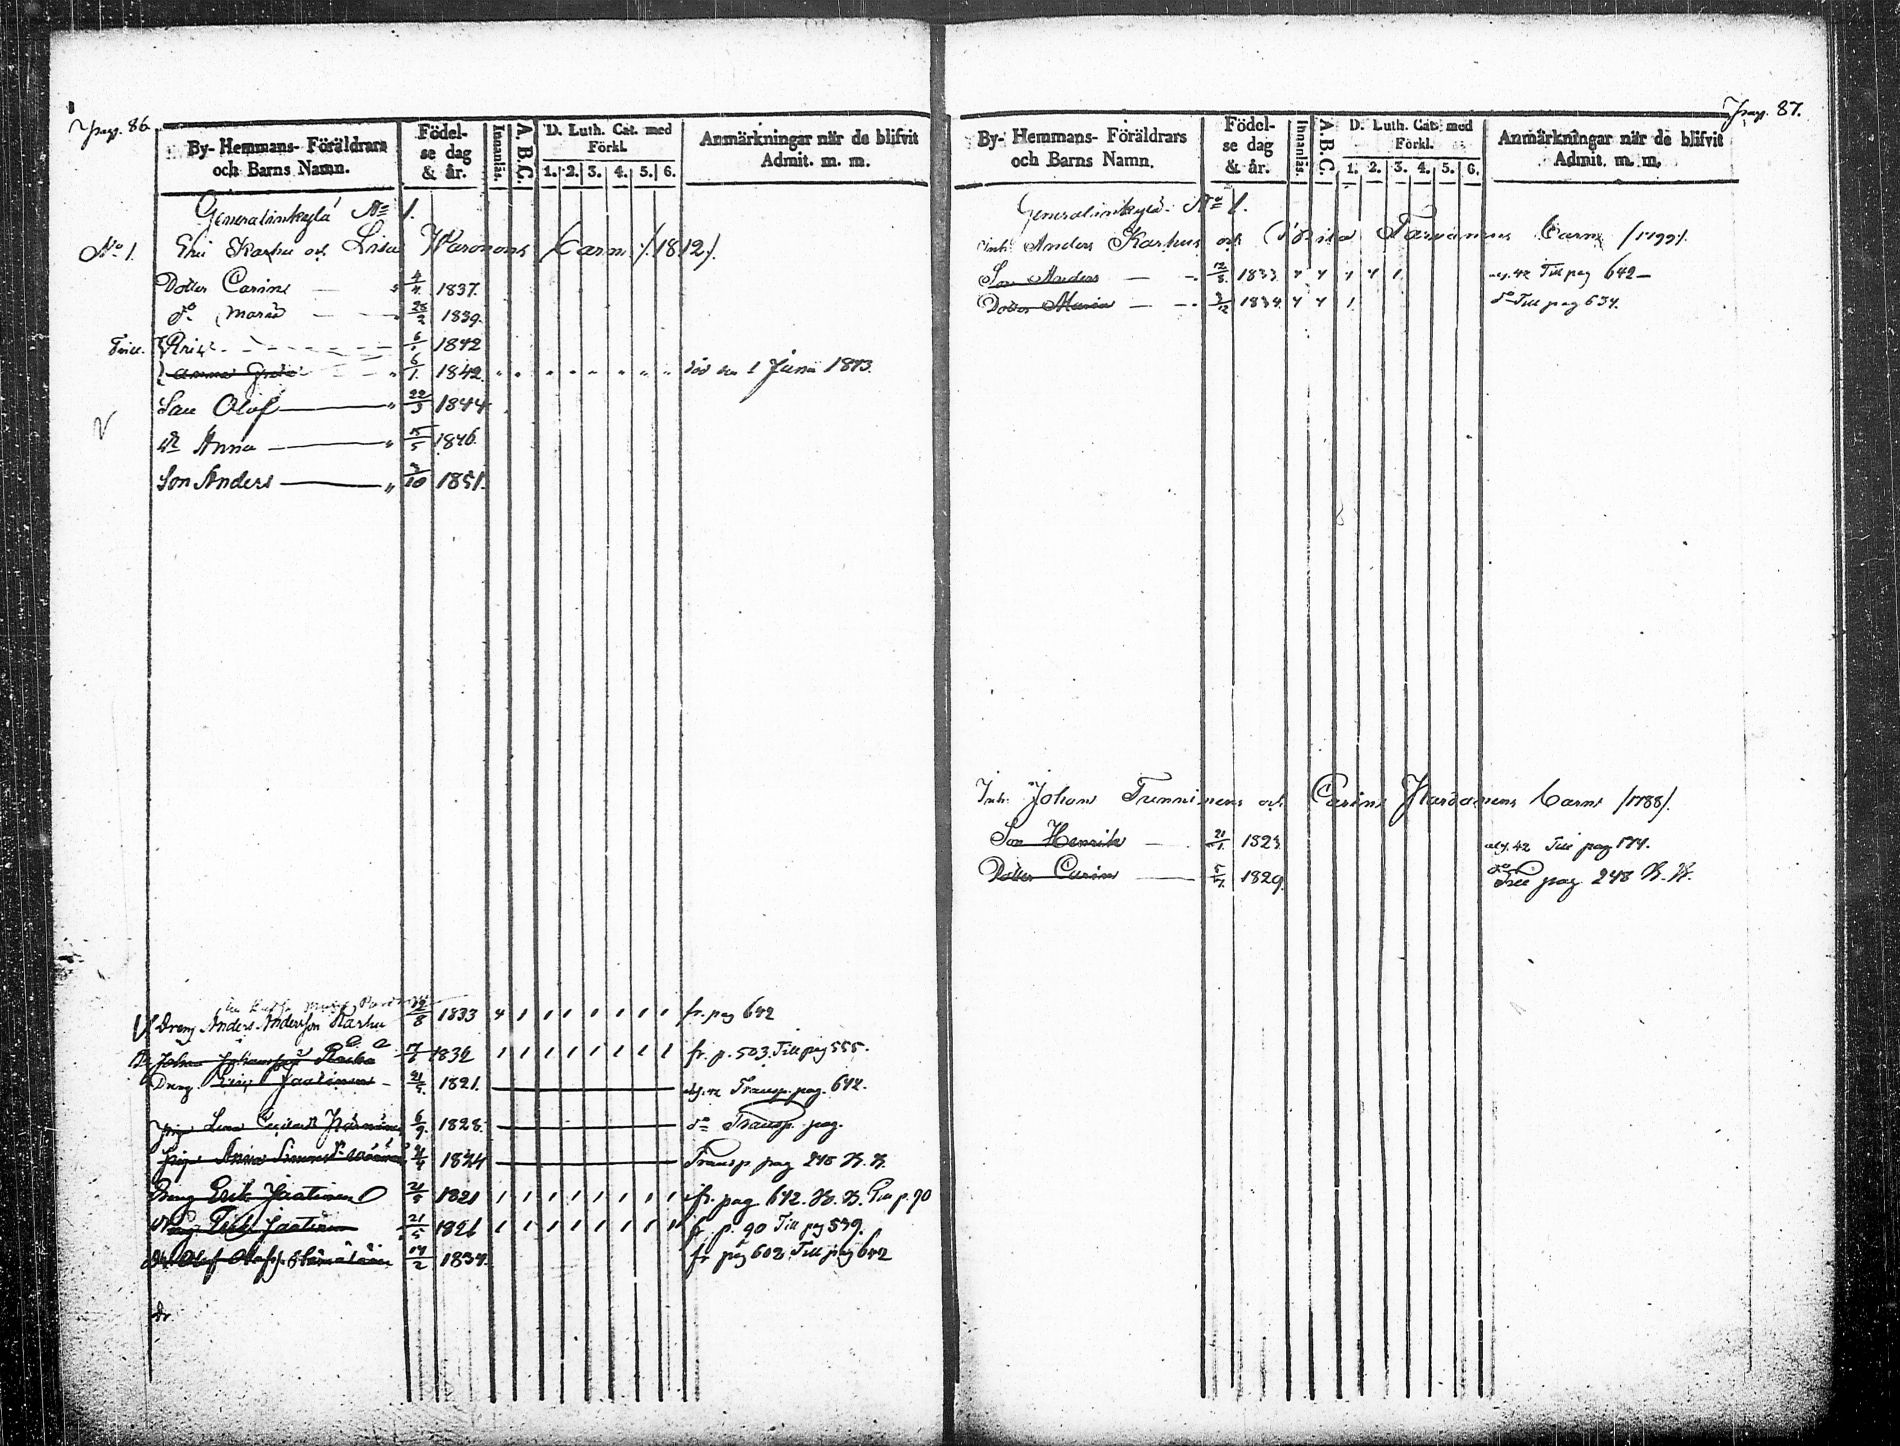 pag. 86.
By- Hemmans- Föräldrars och Barns Namn.
Födelse dag & år.
Innanläs.
A.B.C.
D. Luth. Cat. med Förkl.
1. 2. 3. 4. 5. 6.
Anmärkningar när de blifvit Admit. m. m.
Generalinkylä No 1.
No 1. Eric Karhu och Lisa Karonens barn /:1812/.
Dotter Carin — " 4/4 1837.
do Maria — 28/2 1839.
Eric 6/1 1842
Anna Greta " 6/1 1842. död den 1 Junii 1843.
Son Olof — " 22/3 1844
dr Anna — " 15/5 1846.
Son Anders — " 2/10 1851.
Dreng Anders Andersson Karhu 12/8 1833 fr. pag 642
Johan Johansson 1832 fr. p. 503. Till pag 555.
Dreng Eric Jaatinen — 21/5 1821. Transp. pag. 642.
Lena 6/9 1828. — do Transp. pag.
Anna 1824 — Transp pag 248 K. K.
Dreng Erik Jaatinen 21/5 1821 fr. pag 642. Till p. 90
Dreng Erik Jaatinen 21/5 1821 fr p. 90 Till pag 539.
Dr. Olof 14/2 1834. fr pag 602. Till pag 642
Dr
pag. 87.
By- Hemmans- Föräldrars och Barns Namn.
Födelse dag & år.
Innanläs.
A.B.C.
D. Luth. Cat. med Förkl.
1. 2. 3. 4. 5. 6.
Anmärkningar när de blifvit Admit. m. m.
Generalinkylä. No 1.
Inh. Anders Karhus och Brita Tarvainens barn /1799/.
Son Anders — 12/8 1833 Till pag 642—
Dotter Maria — 1834 do Till pag 634.
Inh. Johan Tunninens och Carin barn /1788/.
Son Henrik — 21/1. 1823. Till pag 174.
Dotter Carin — 5/7. 1829 do Till pag 248 K. K.